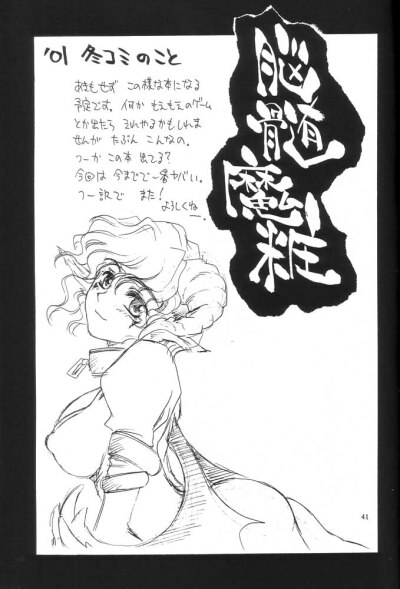 '01 冬コミのこと
あきもせず この様な本になる
予定です。何か もえもえのゲーム
とか出たら それやるかもしれま
せんが たぶん こんなの。
つーか この本 出てる?
今回は 今までで一番ヤバい。
つー訳で また!
よろしくね
脳髄魔粧
41